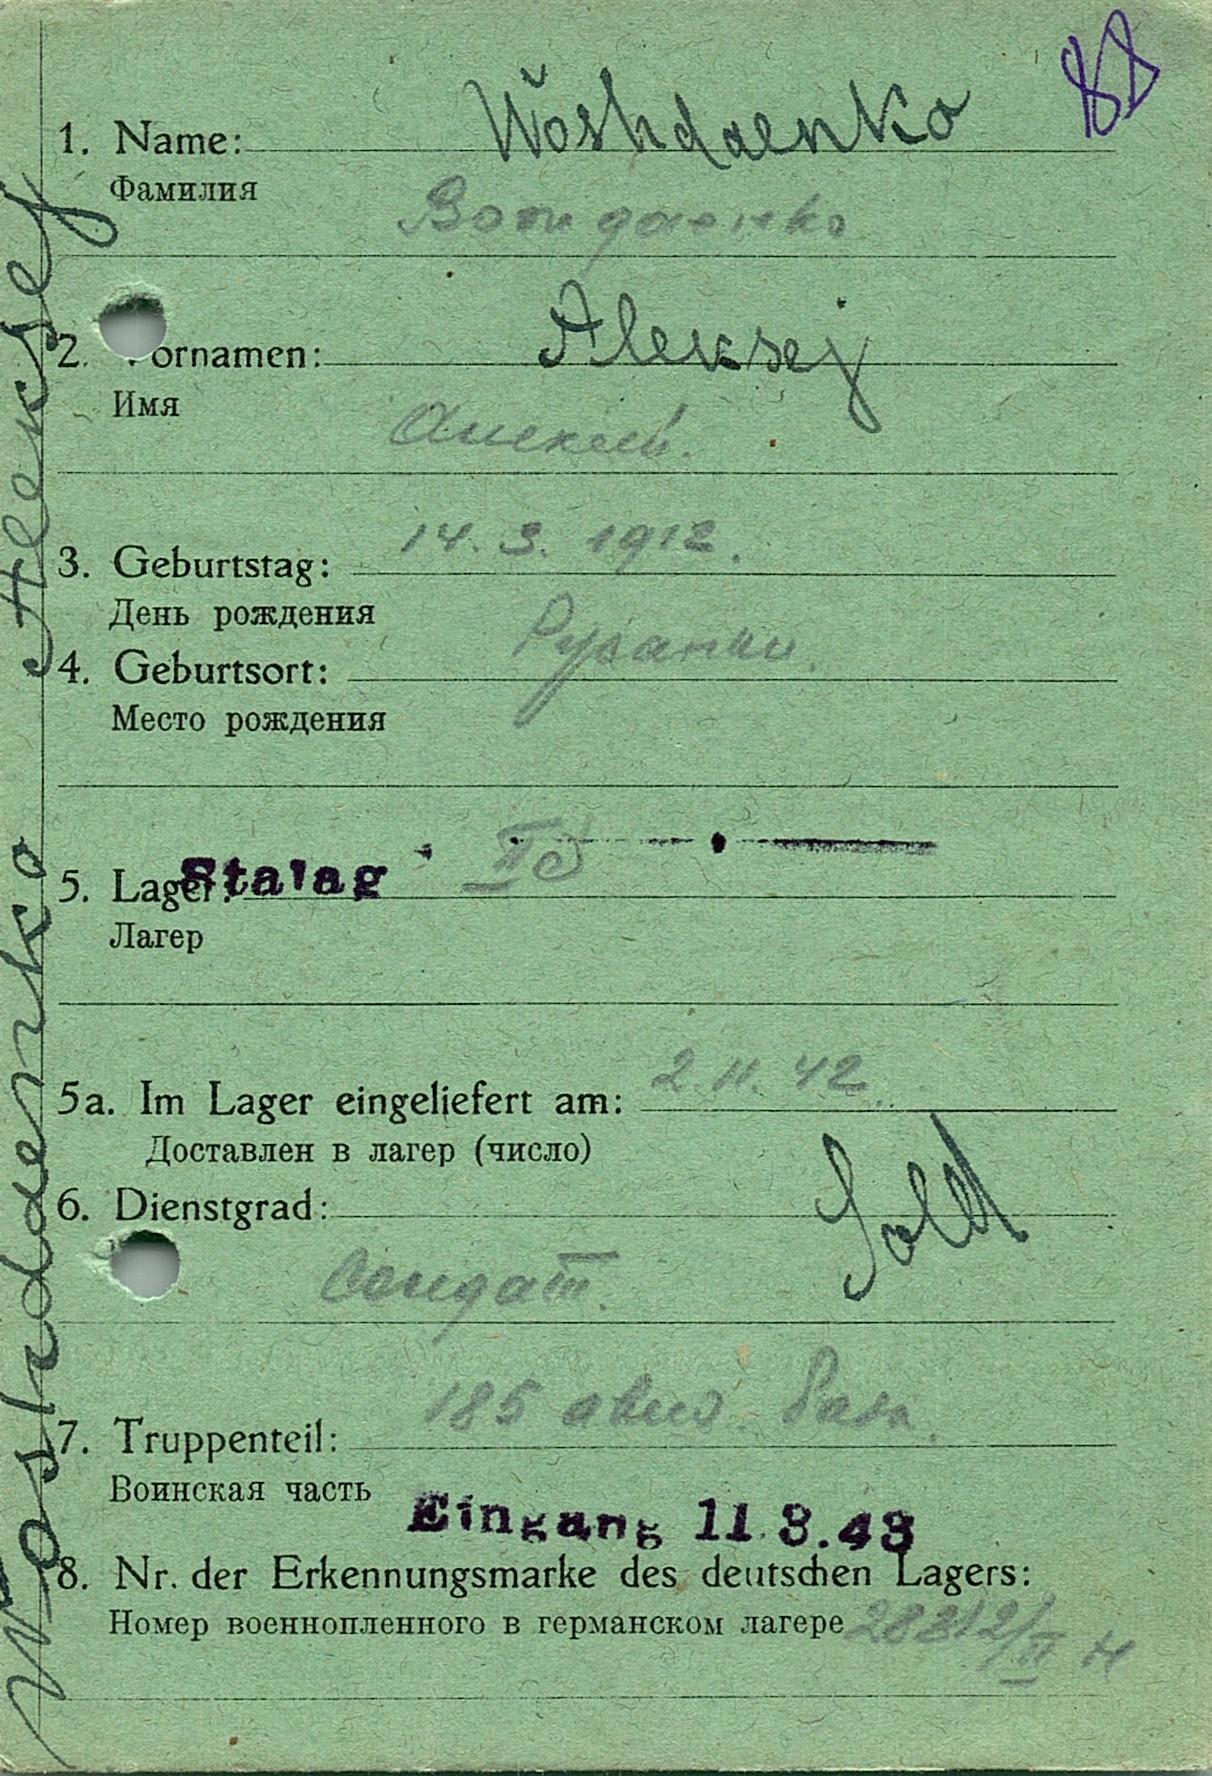 Woshdaenko
1. Name:
Фамилия
2. ornamen: Aleksej
Имя
Алексей.
14. 3. 1912.
3. Geburtstag:
День рождения
4. Geburtsort:
Место рождения
Stalag
5. Lager:
Лагер
2. 11. 42.
5a. Im Lager eingeliefert am:
Доставлен в лагер (число)
6. Dienstgrad: Sold
Солдат.
185 авио. база.
7. Truppenteil:
Воинская часть
Eingang 11.3.43
8. Nr. der Erkennungsmarke des deutschen Lagers:
Номер военнопленного в германском лагере 28312/II H
Woshdaenko Aleksej